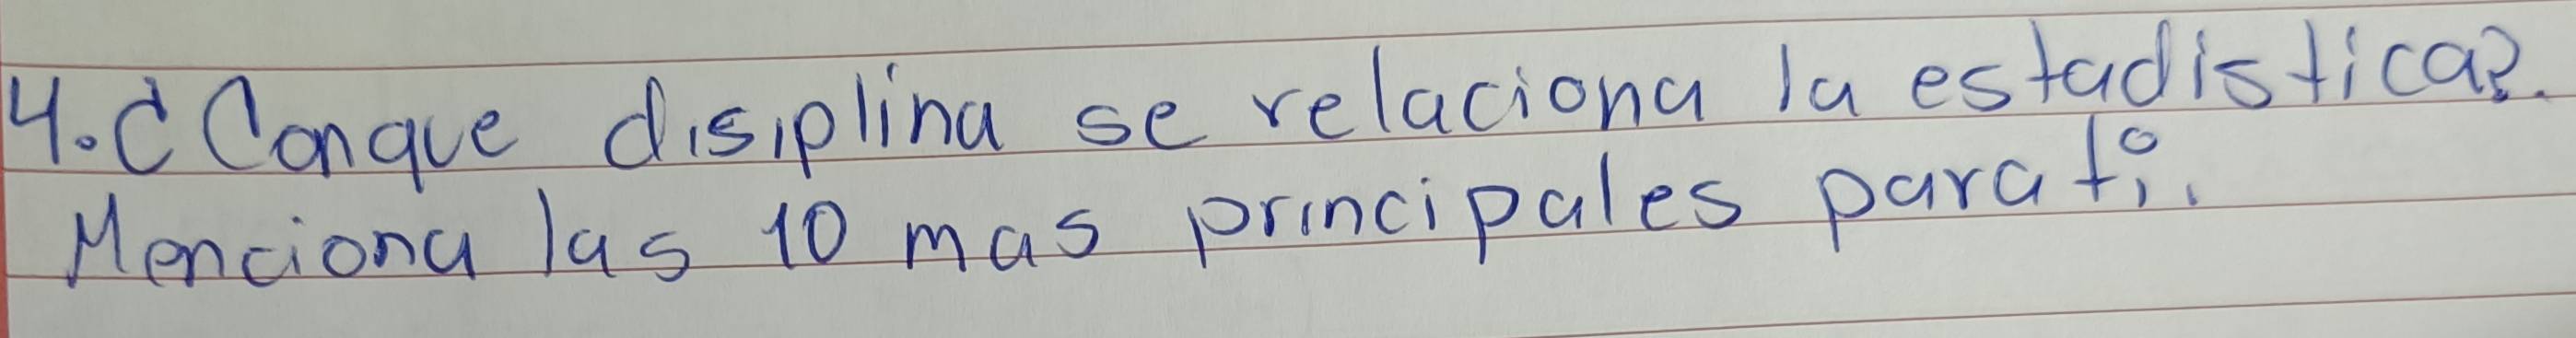 4. ¿Conque disiplina se relaciona la estadistica?.
Menciona las 10 mas principales para ti.